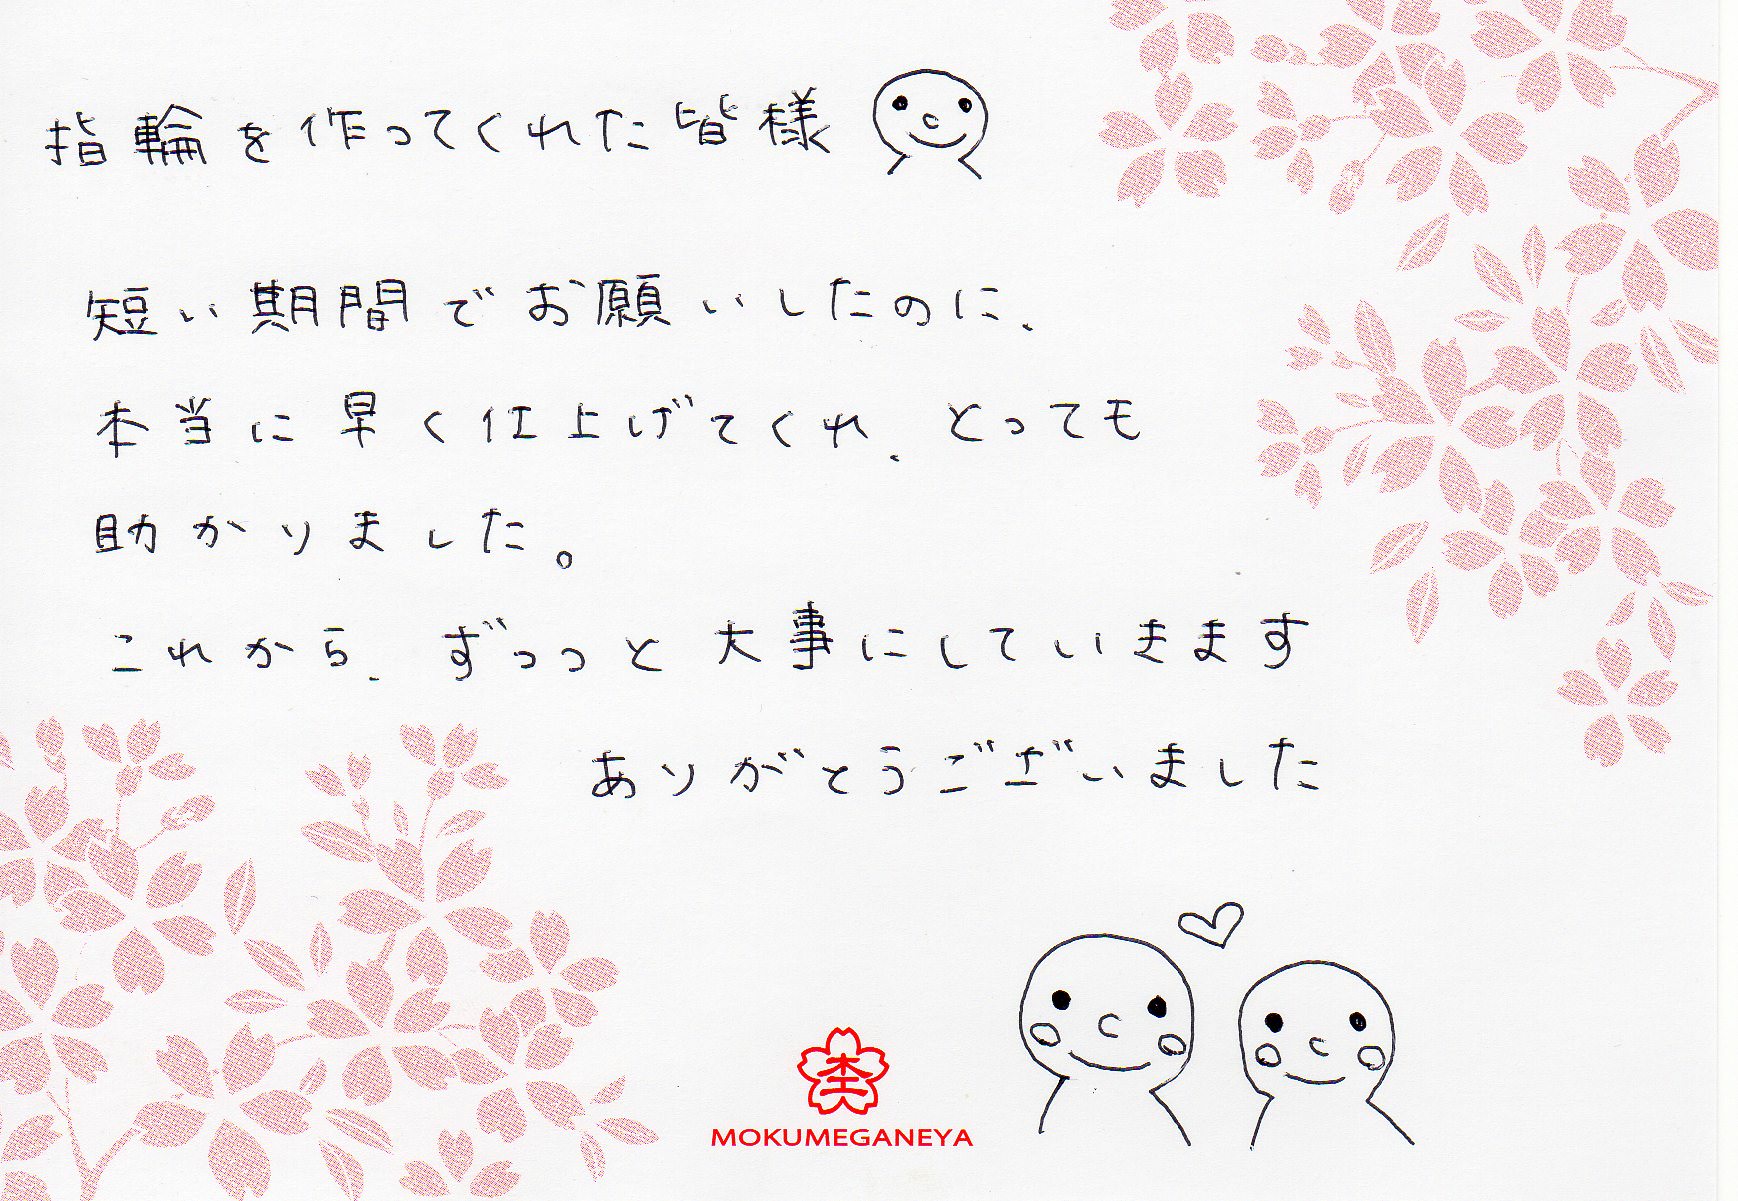 指輪を作ってくれた皆様
短い期間でお願いしたのに、
本当に早く仕上げてくれ、とっても
助かりました。
これから、ずっっと大事にしていきます
ありがとうございました
MOKUMEGANEYA